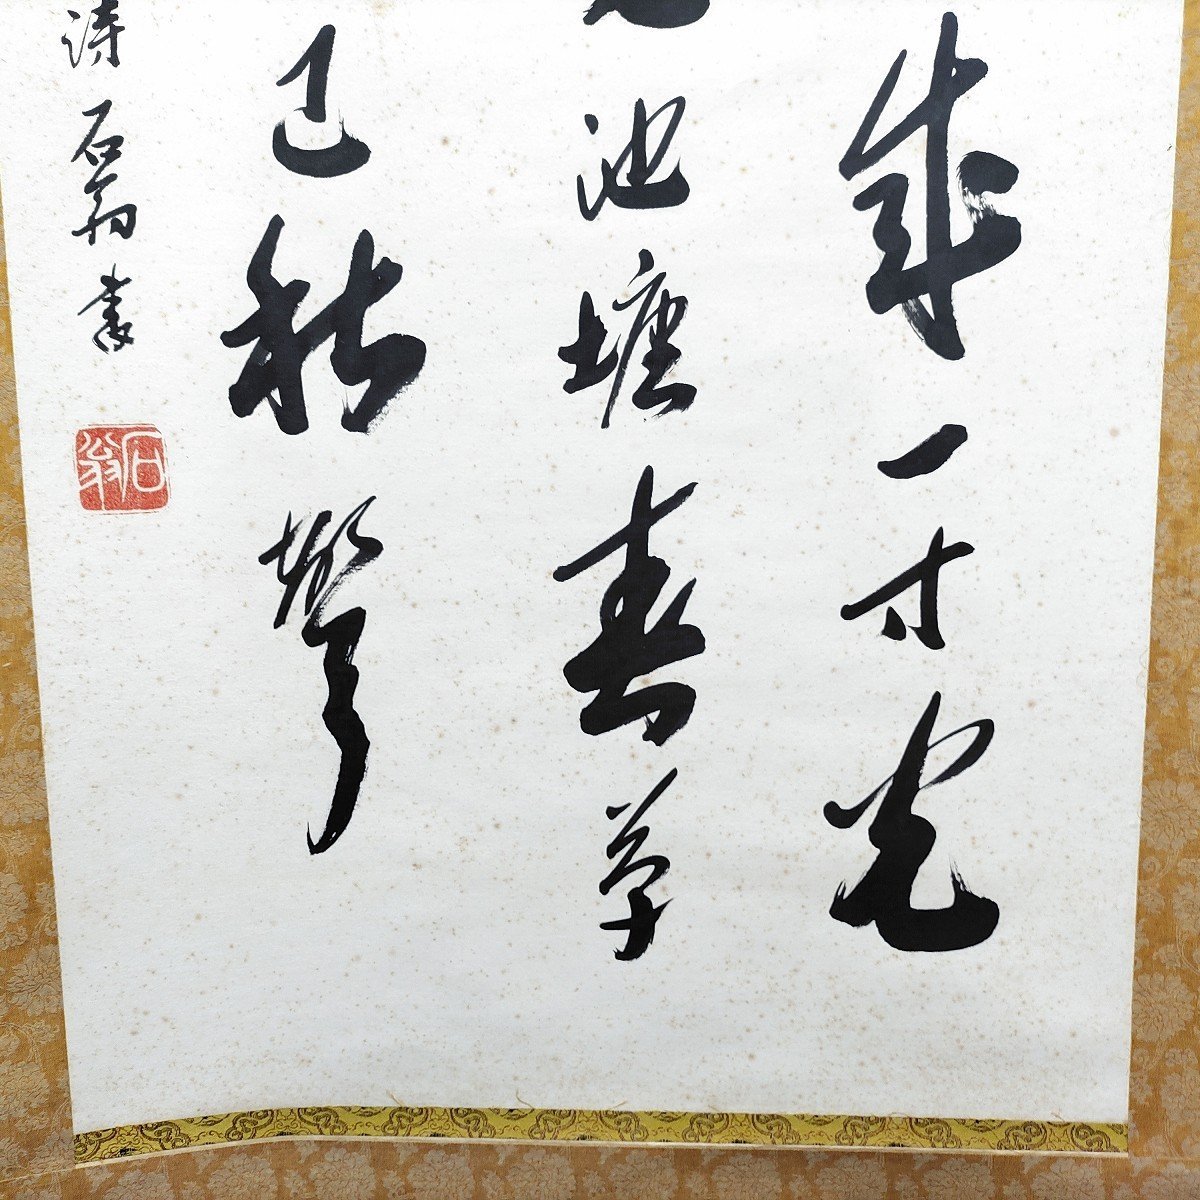 成一寸光
池塘春草
已秋聲
詩石翁書
石翁